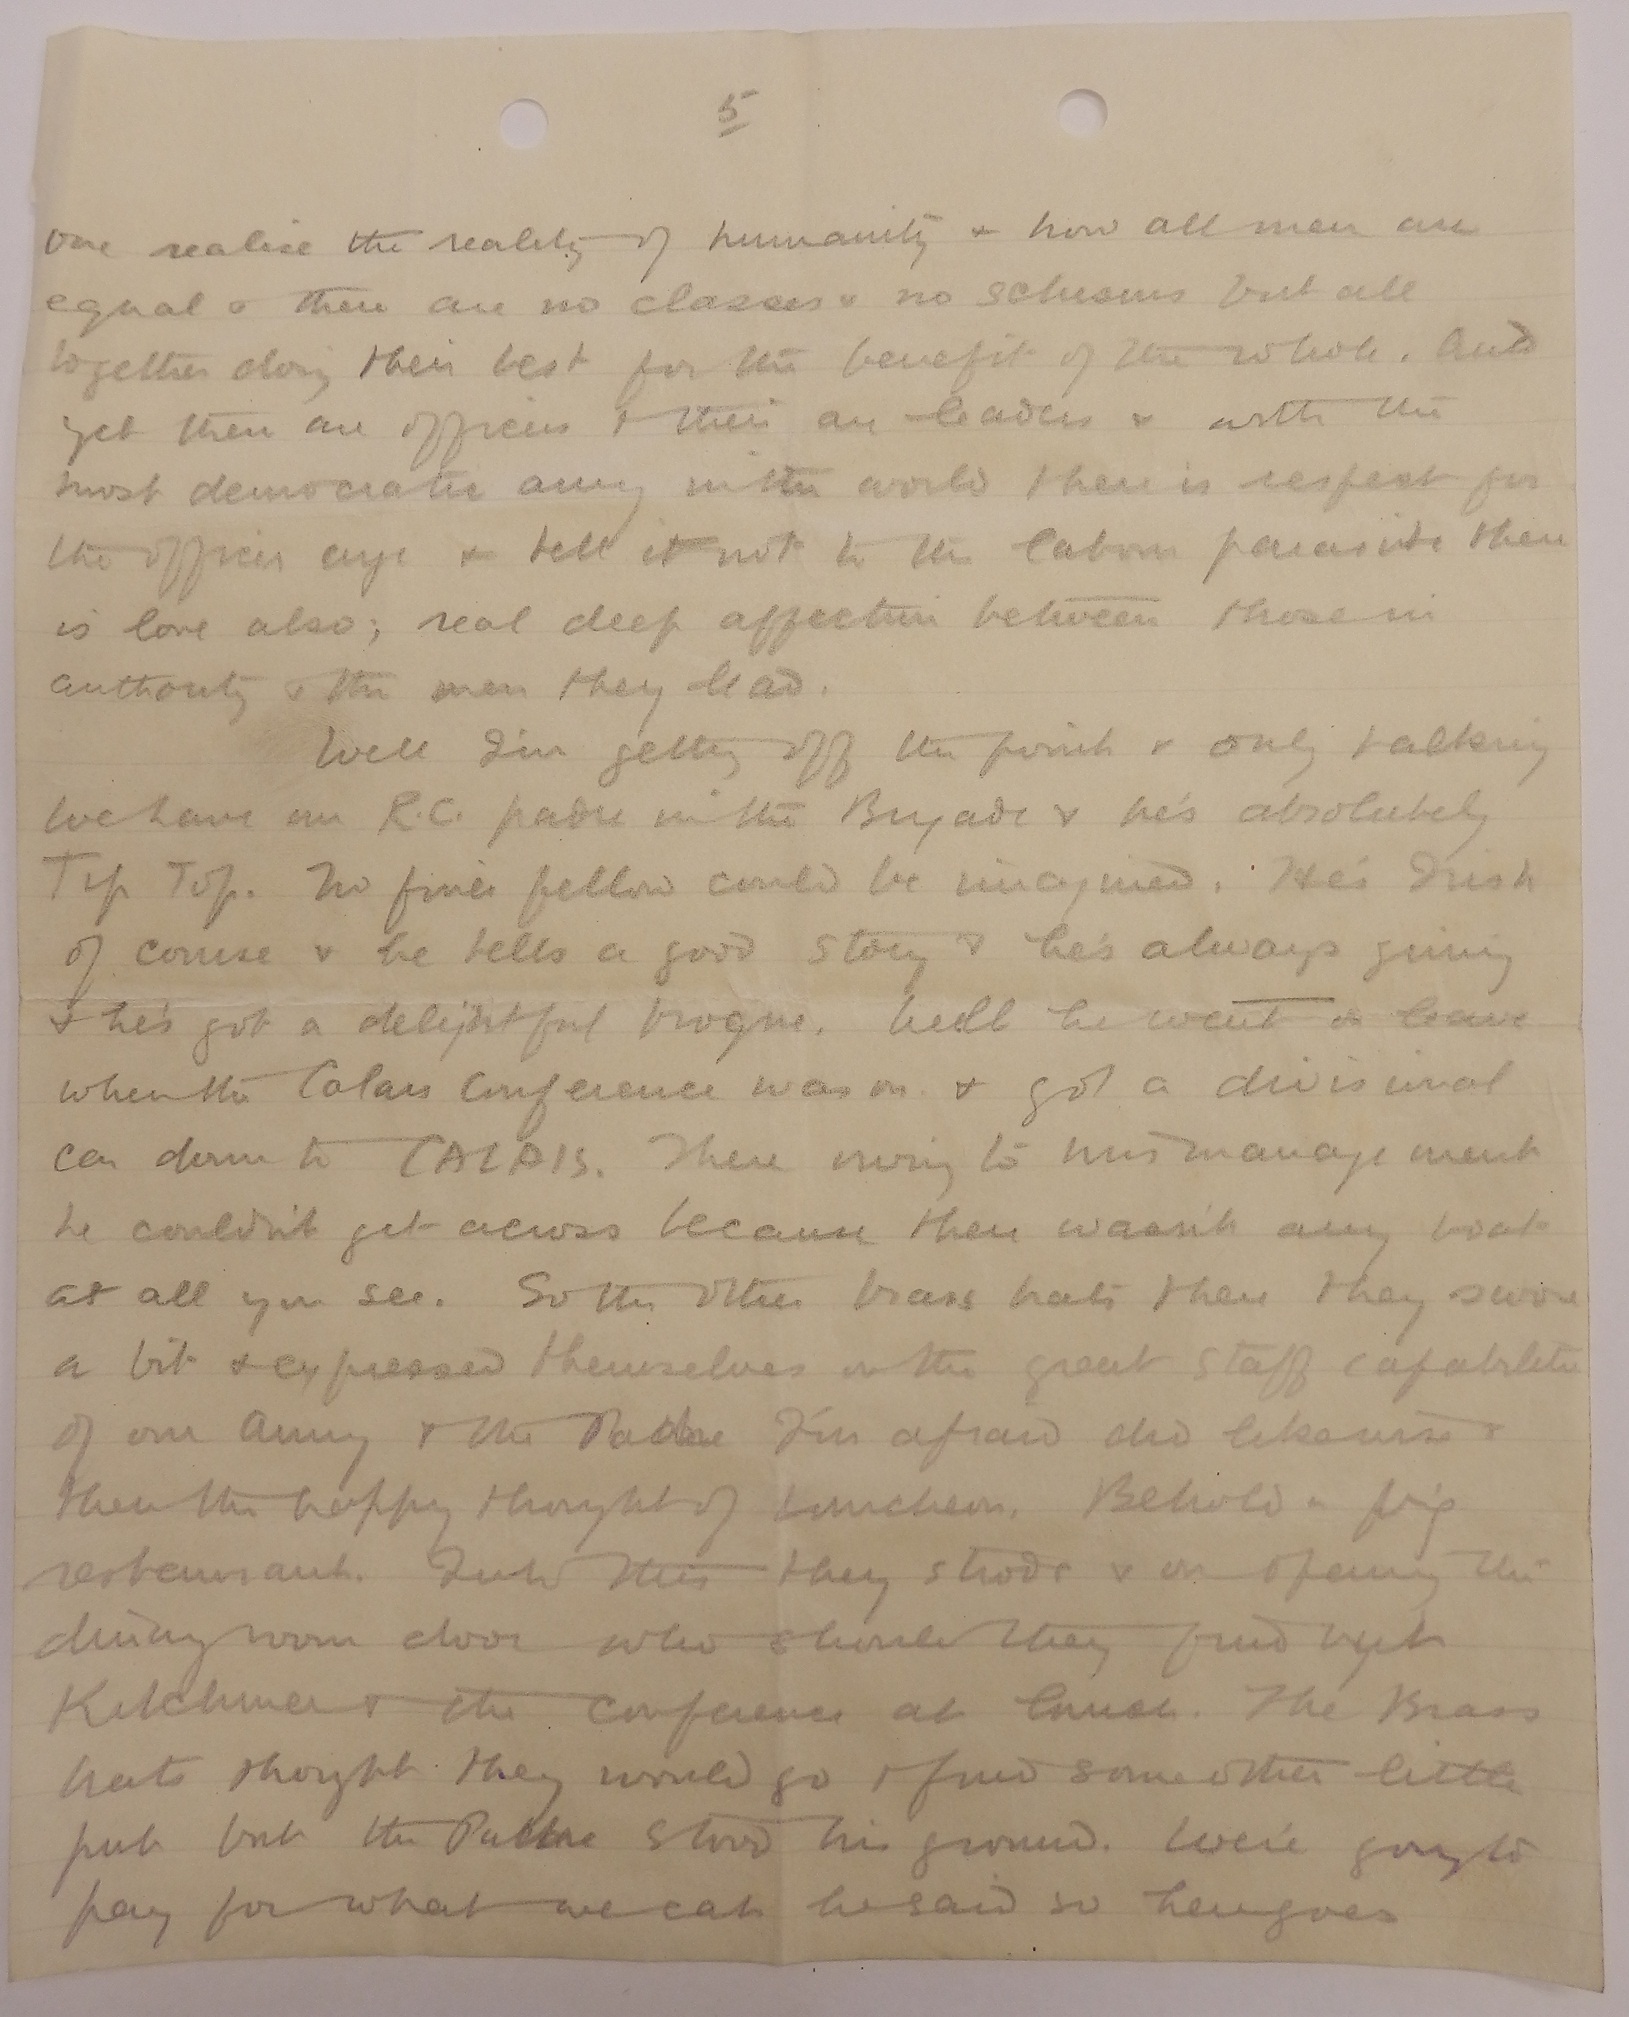 5
one realise the reality of humanity & how all men are
equal & there are no classes & no schisms but all
together doing their best for the benefit of the whole. And
yet there are officers & their are leaders & with the
most democratic army in the world there is respect for
the officer & tell it not to the labour parasite there
is love also; real deep affection between those in
authority & the men they lead.
Well I'm getting off the point & only talking
We have an R.C. padre in the Brigade & he's absolutely
Tip Top. No finer fellow could be imagined. He's Irish
of course & he tells a good story & he's always giving
& he's got a delightful brogue. Well he went on leave
when the Calais Conference was on & got a divisional
car down to CALAIS. There owing to mismanagement
he couldn't get across because there wasn't any boat
at all you see. So the other brass hats there they swore
a bit & expressed themselves on the great staff capabilities
of our Army & the Padre I'm afraid did likewise &
then the happy thought of luncheon. Behold a
restaurant. Into this they strode & on opening the
dining room door who should they find but
Kitchener & the conference at lunch. The Brass
hats thought they would go & find some other little
pub but the Padre stood his ground. We're going to
pay for what we eat he said so here goes